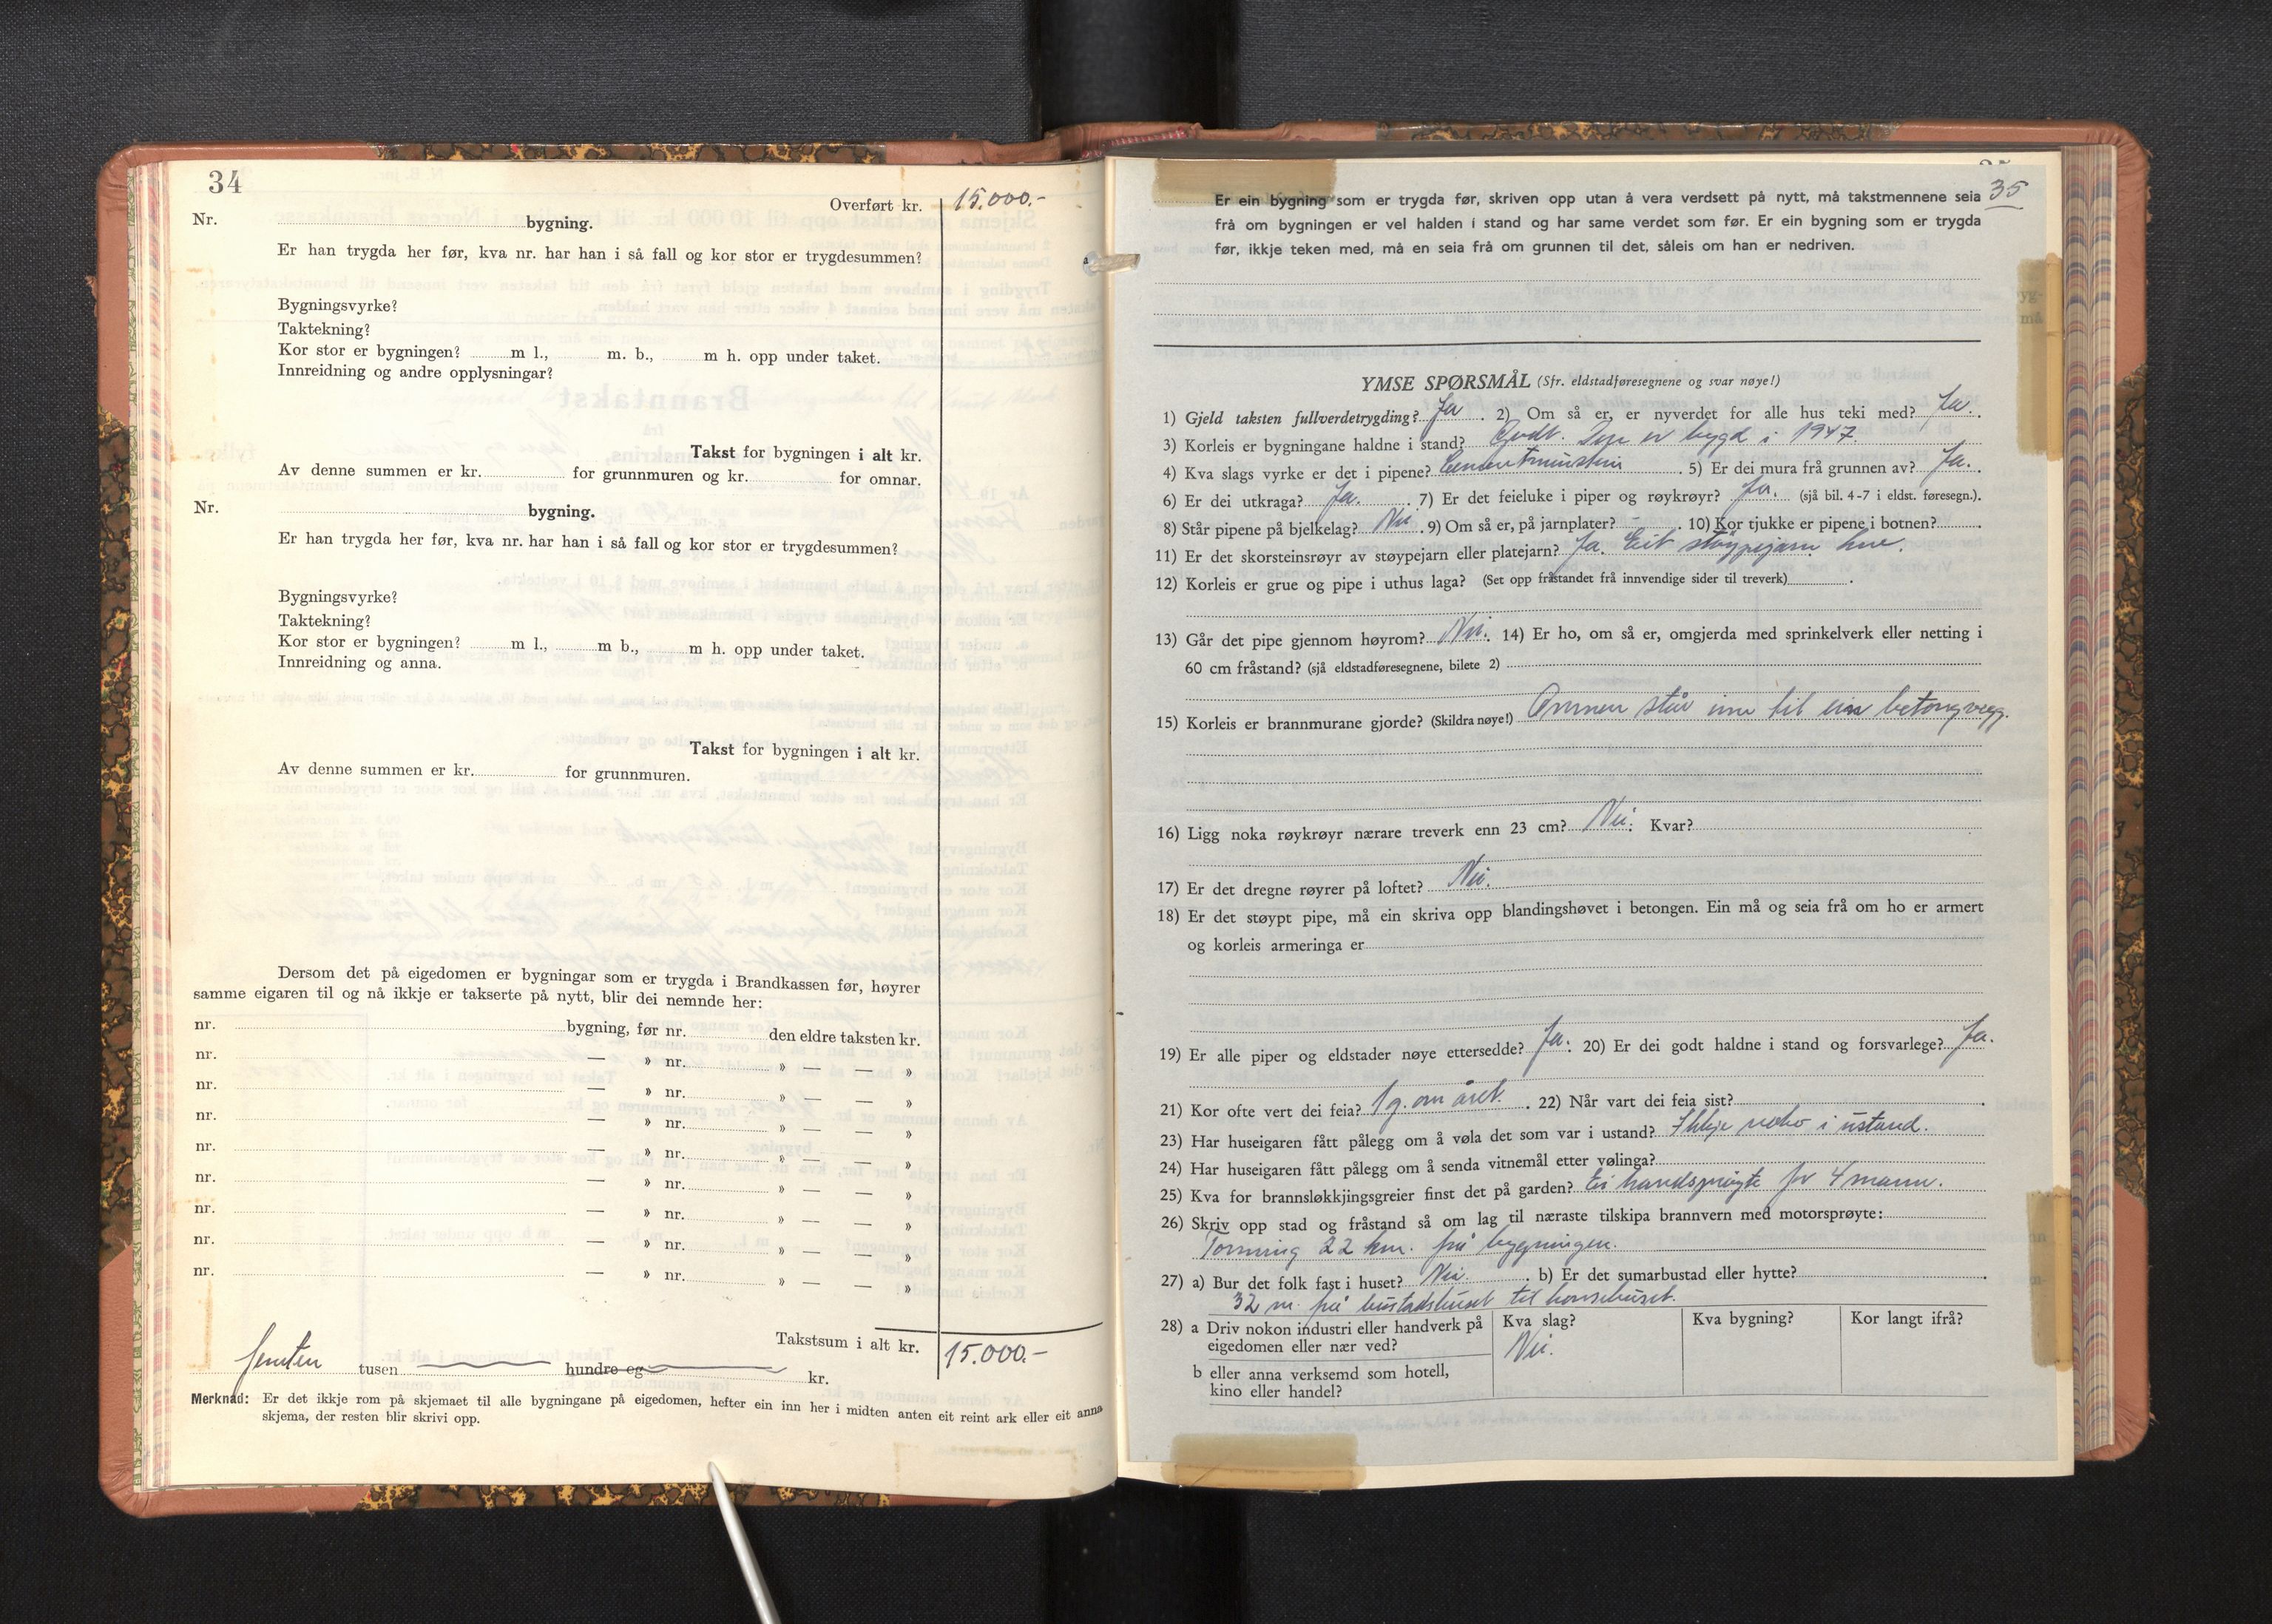 34
Overført kr. 15.000.-
Nr. bygning.
Er han trygda her før, kva nr. har han i så fall og kor stor er trygdesummen?
Bygningsvyrke?
Taktekning?
Kor stor er bygningen? m l., m. b., m h. opp under taket.
Innreidning og andre opplysningar?
Takst for bygningen i alt kr.
Av denne summen er kr. for grunnmuren og kr. for omnar.
Nr. bygning.
Er han trygda her før, kva nr. har han i så fall og kor stor er trygdesummen?
Bygningsvyrke?
Taktekning?
Kor stor er bygningen? m l., m b., m h. opp under taket.
Innreidning og anna.
Takst for bygningen i alt kr.
Av denne summen er kr. for grunnmuren.
Dersom det på eigedomen er bygningar som er trygda i Brandkassen før, høyrer
samme eigaren til og nå ikkje er takserte på nytt, blir dei nemnde her:
nr. bygning, før nr. den eldre taksten kr.
nr. — » nr. » — — »
nr. — » nr. » — — »
nr. — » nr. » — — »
nr. — » nr. » — — »
nr. — » nr. » — — »
nr. — » nr. » — — »
nr. — » nr. » — — »
nr. — » nr. » — — »
Takstsum i alt kr. 15.000.-
femten tusen hundre og kr.
Merknad: Er det ikkje rom på skjemaet til alle bygningane på eigedomen, hefter ein inn her i midten anten eit reint ark eller eit anna
skjema, der resten blir skrivi opp.
35
Er ein bygning som er trygda før, skriven opp utan å vera verdsett på nytt, må takstmennene seia
frå om bygningen er vel halden i stand og har same verdet som før. Er ein bygning som er trygda
før, ikkje teken med, må en seia frå om grunnen til det, såleis om han er nedriven.
YMSE SPØRSMÅL (Sfr. eldstadføresegnene og svar nøye!)
1) Gjeld taksten fullverdetrygding? Ja. 2) Om så er, er nyverdet for alle hus teki med? Ja.
3) Korleis er bygningane haldne i stand? Godt. Den er bygd i 1947.
4) Kva slags vyrke er det i pipene? Cementmurstein. 5) Er dei mura frå grunnen av? Ja.
6) Er dei utkraga? Ja. 7) Er det feieluke i piper og røykrøyr? Ja. (sjå bil. 4-7 i eldst. føresegn.).
8) Står pipene på bjelkelag? Nei. 9) Om så er, på jarnplater? - . 10) Kor tjukke er pipene i botnen?
11) Er det skorsteinsrøyr av støypejarn eller platejarn? Ja. Eit støypejarn
12) Korleis er grue og pipe i uthus laga? (Set opp fråstandet frå innvendige sider til treverk)
13) Går det pipe gjennom høyrom? Nei. 14) Er ho, om så er, omgjerda med sprinkelverk eller netting i
60 cm fråstand? (sjå eldstadføresegnene, bilete 2)
15) Korleis er brannmurane gjorde? (Skildra nøye!) Omnen står inn til ein betongvegg.
16) Ligg noka røykrøyr nærare treverk enn 23 cm? Nei. Kvar?
17) Er det dregne røyrer på loftet? Nei.
18) Er det støypt pipe, må ein skriva opp blandingshøvet i betongen. Ein må og seia frå om ho er armert
og korleis armeringa er
19) Er alle piper og eldstader nøye ettersedde? Ja. 20) Er dei godt haldne i stand og forsvarlege? Ja.
21) Kor ofte vert dei feia? 1 g. om året. 22) Når vart dei feia sist?
23) Har huseigaren fått pålegg om å vøla det som var i ustand? Ikkje noko i ustand.
24) Har huseigaren fått pålegg om å senda vitnemål etter vølinga?
25) Kva for brannsløkkjingsgreier finst det på garden? Ei handsprøyte for 4 mann.
26) Skriv opp stad og fråstand så om lag til næraste tilskipa brannvern med motorsprøyte:
22 km. frå bygningen.
27) a) Bur det folk fast i huset? Nei. b) Er det sumarbustad eller hytte?
32 m. frå bustadshuset til hønsehuset.
28) a Driv nokon industri eller handverk på Kva slag? Kva bygning? Kor langt ifrå?
eigedomen eller nær ved? Nei.
b eller anna verksemd som hotell,
kino eller handel?